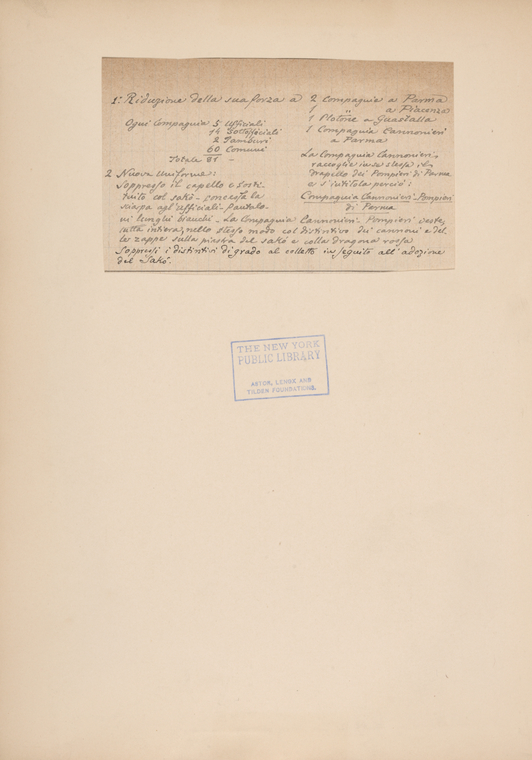 1º Riduzione della sua forza a
2 Compagnie a Parma
1 " a Piacenza
1 Plotone a Guastalla
1 Compagnia Cannonieri
a Parma
Ogni Compagnia 5 Ufficiali
14 Sottofficiali
2 Tamburi
60 Comuni
Totale 81 -
La Compagnia Cannonieri
raccoglie in se stessa il
Drapello dei Pompieri di Parma
e s'intitola perciò:
Compagnia Cannonieri Pompieri
di Parma
2 Nuova Uniforme:
Soppresso il capello e sosti-
tuito col sakó - concessa la
sciarpa agl'Ufficiali. Pantalo-
ni lunghi bianchi - La Compagnia Cannonieri - Pompieri veste,
tutta intiera, nello stesso modo col distintivo dei cannoni e del-
le zappe sulla piastra del sakó e colla dragona rossa
Soppressi i distintivi di grado al colletto in seguito all'adozione
del Sakó.
THE NEW YORK
PUBLIC LIBRARY
ASTOR, LENOX AND
TILDEN FOUNDATIONS.